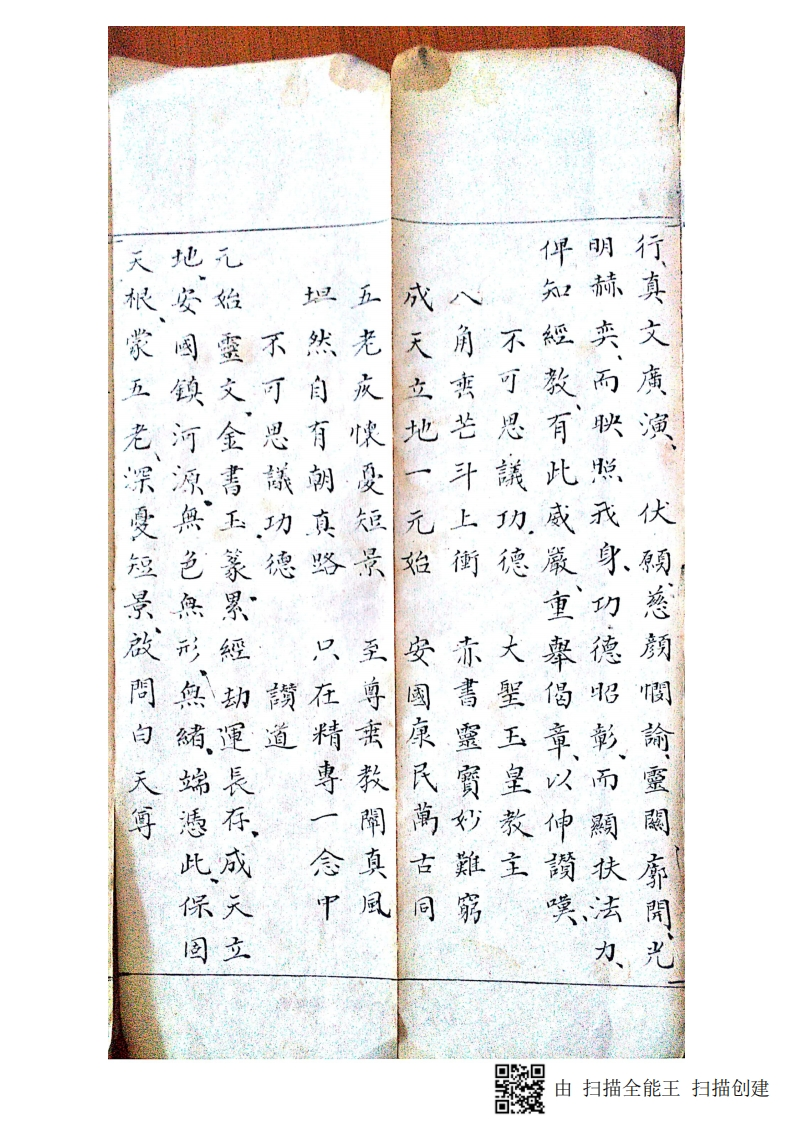 行、真文廣演、 伏願、慈顏憫諭、靈關廓開、光
明赫奕、而映照我身、功德昭彰、而顯扶法力、
俾知經教、有此威嚴、重舉偈章、以伸讚嘆、
不可思議功德 大聖玉皇教主
八角垂芒斗上衝 赤書靈寶妙難窮
成天立地一元始 安國康民萬古同
五老疚懷憂短景 至尊垂教闡真風
坦然自有朝真路 只在精專一念中
不可思議功德 讚道
元始靈文、金書玉篆、累經劫運長存、成天立
地、安國鎮河源、無色無形、無緒、端憑此、保固
天根、蒙五老、深憂短景、啟問白 天尊
由 扫描全能王 扫描创建